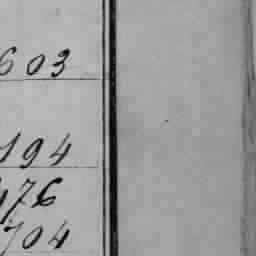 603
194
476
704